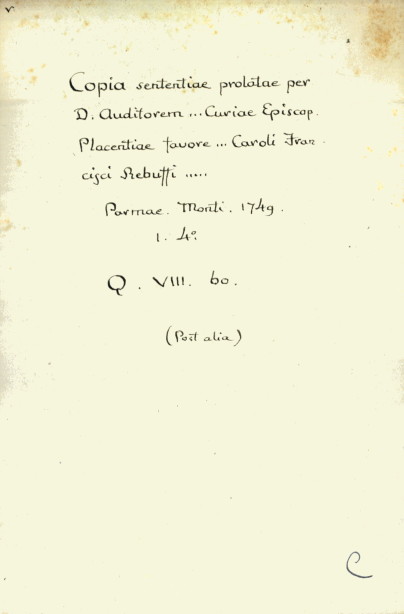 v
Copia sententiae prolatae per
D. Auditorem ... Curiae Episcop.
Placentiae favore ... Caroli Fran-
cisci Rebuffi .....
Parmae. Monti. 1749.
1. 4º.
Q. VIII. 60.
(Post alia)
C